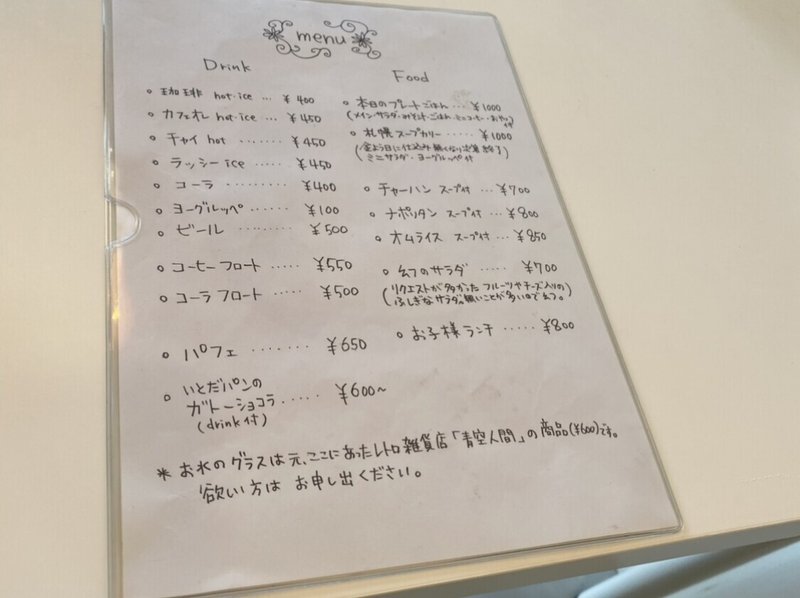 menu
Drink
・珈琲 hot・ice ... ¥400
・カフェオレ hot・ice ... ¥450
・チャイ hot ....... ¥450
・ラッシー ice ..... ¥450
・コーラ ......... ¥400
・ヨーグルッペ ...... ¥100
・ビール ...... ¥500
・コーヒーフロート ..... ¥550
・コーラフロート ..... ¥500
・パフェ ....... ¥650
・いとだパンの
ガトーショコラ ..... ¥600〜
(drink付)
Food
・本日のプレートごはん ... ¥1000
(メイン・サラダ・みそ汁・ごはん・ミニコーヒー・おやつ付)
・札幌スープカリー ..... ¥1000
(金よう日に仕込み 無くなり次第終了
ミニサラダ・ヨーグルッペ付)
・チャーハン スープ付 ... ¥700
・ナポリタン スープ付 ... ¥800
・オムライス スープ付 ... ¥850
・幻のサラダ ..... ¥700
(リクエストが多かった フルーツやチーズ入りの
ふしぎなサラダ。無いことが多いので幻。)
・お子様ランチ ..... ¥800
* お水のグラスは元、ここにあったレトロ雑貨店「青空人間」の商品(¥600)です。
欲しい方は お申し出ください。